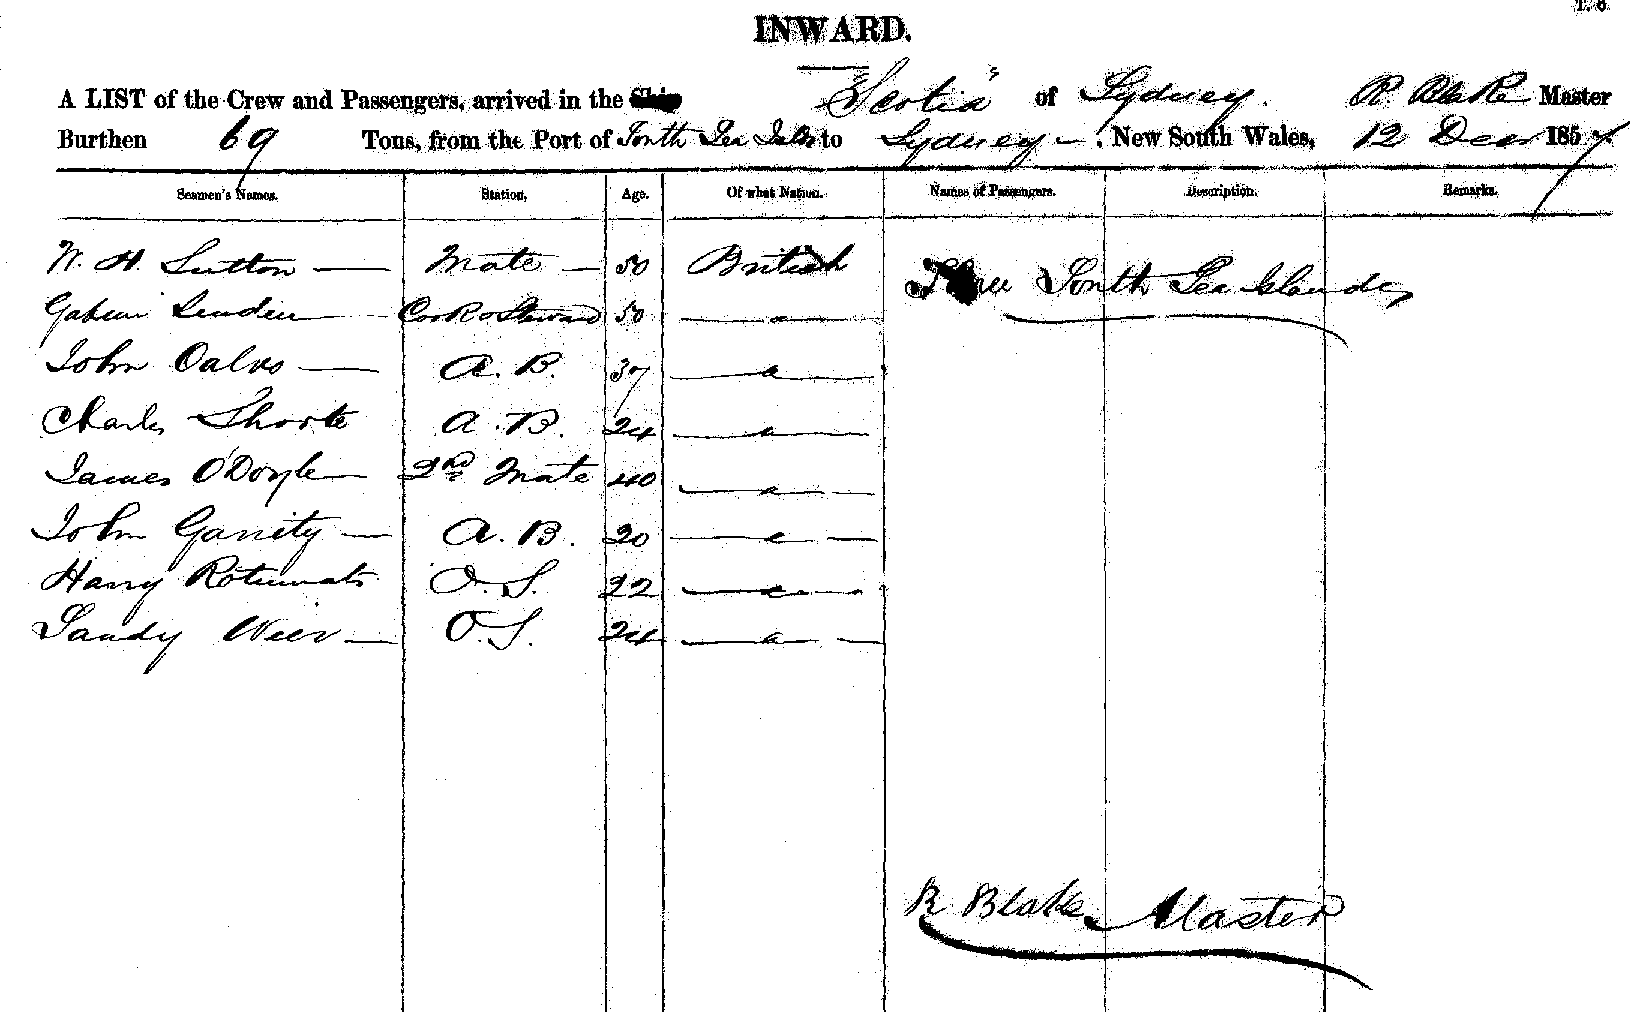 INWARD.
A LIST of the Crew and Passengers, arrived in the Ship "Scotia" of Sydney. R. Blake Master
Burthen 69 Tons, from the Port of South Sea Islds to Sydney - New South Wales, 12 Decr 1857
Seamen's Names. Station, Age. Of what Nation. Names of Passengers. Description. Remarks.
W. H. Sutton Mate 50 British Three South Sea Islanders
Cook & Steward 50 "
John Oakes A. B. 37 "
Charles Shorte A. B. 24 "
James O'Doyle 2nd Mate 40 "
John Garrity A. B. 20 "
Harry Rotumah O. S. 22 "
Sandy Weir O. S. 24 "
R Blake Master